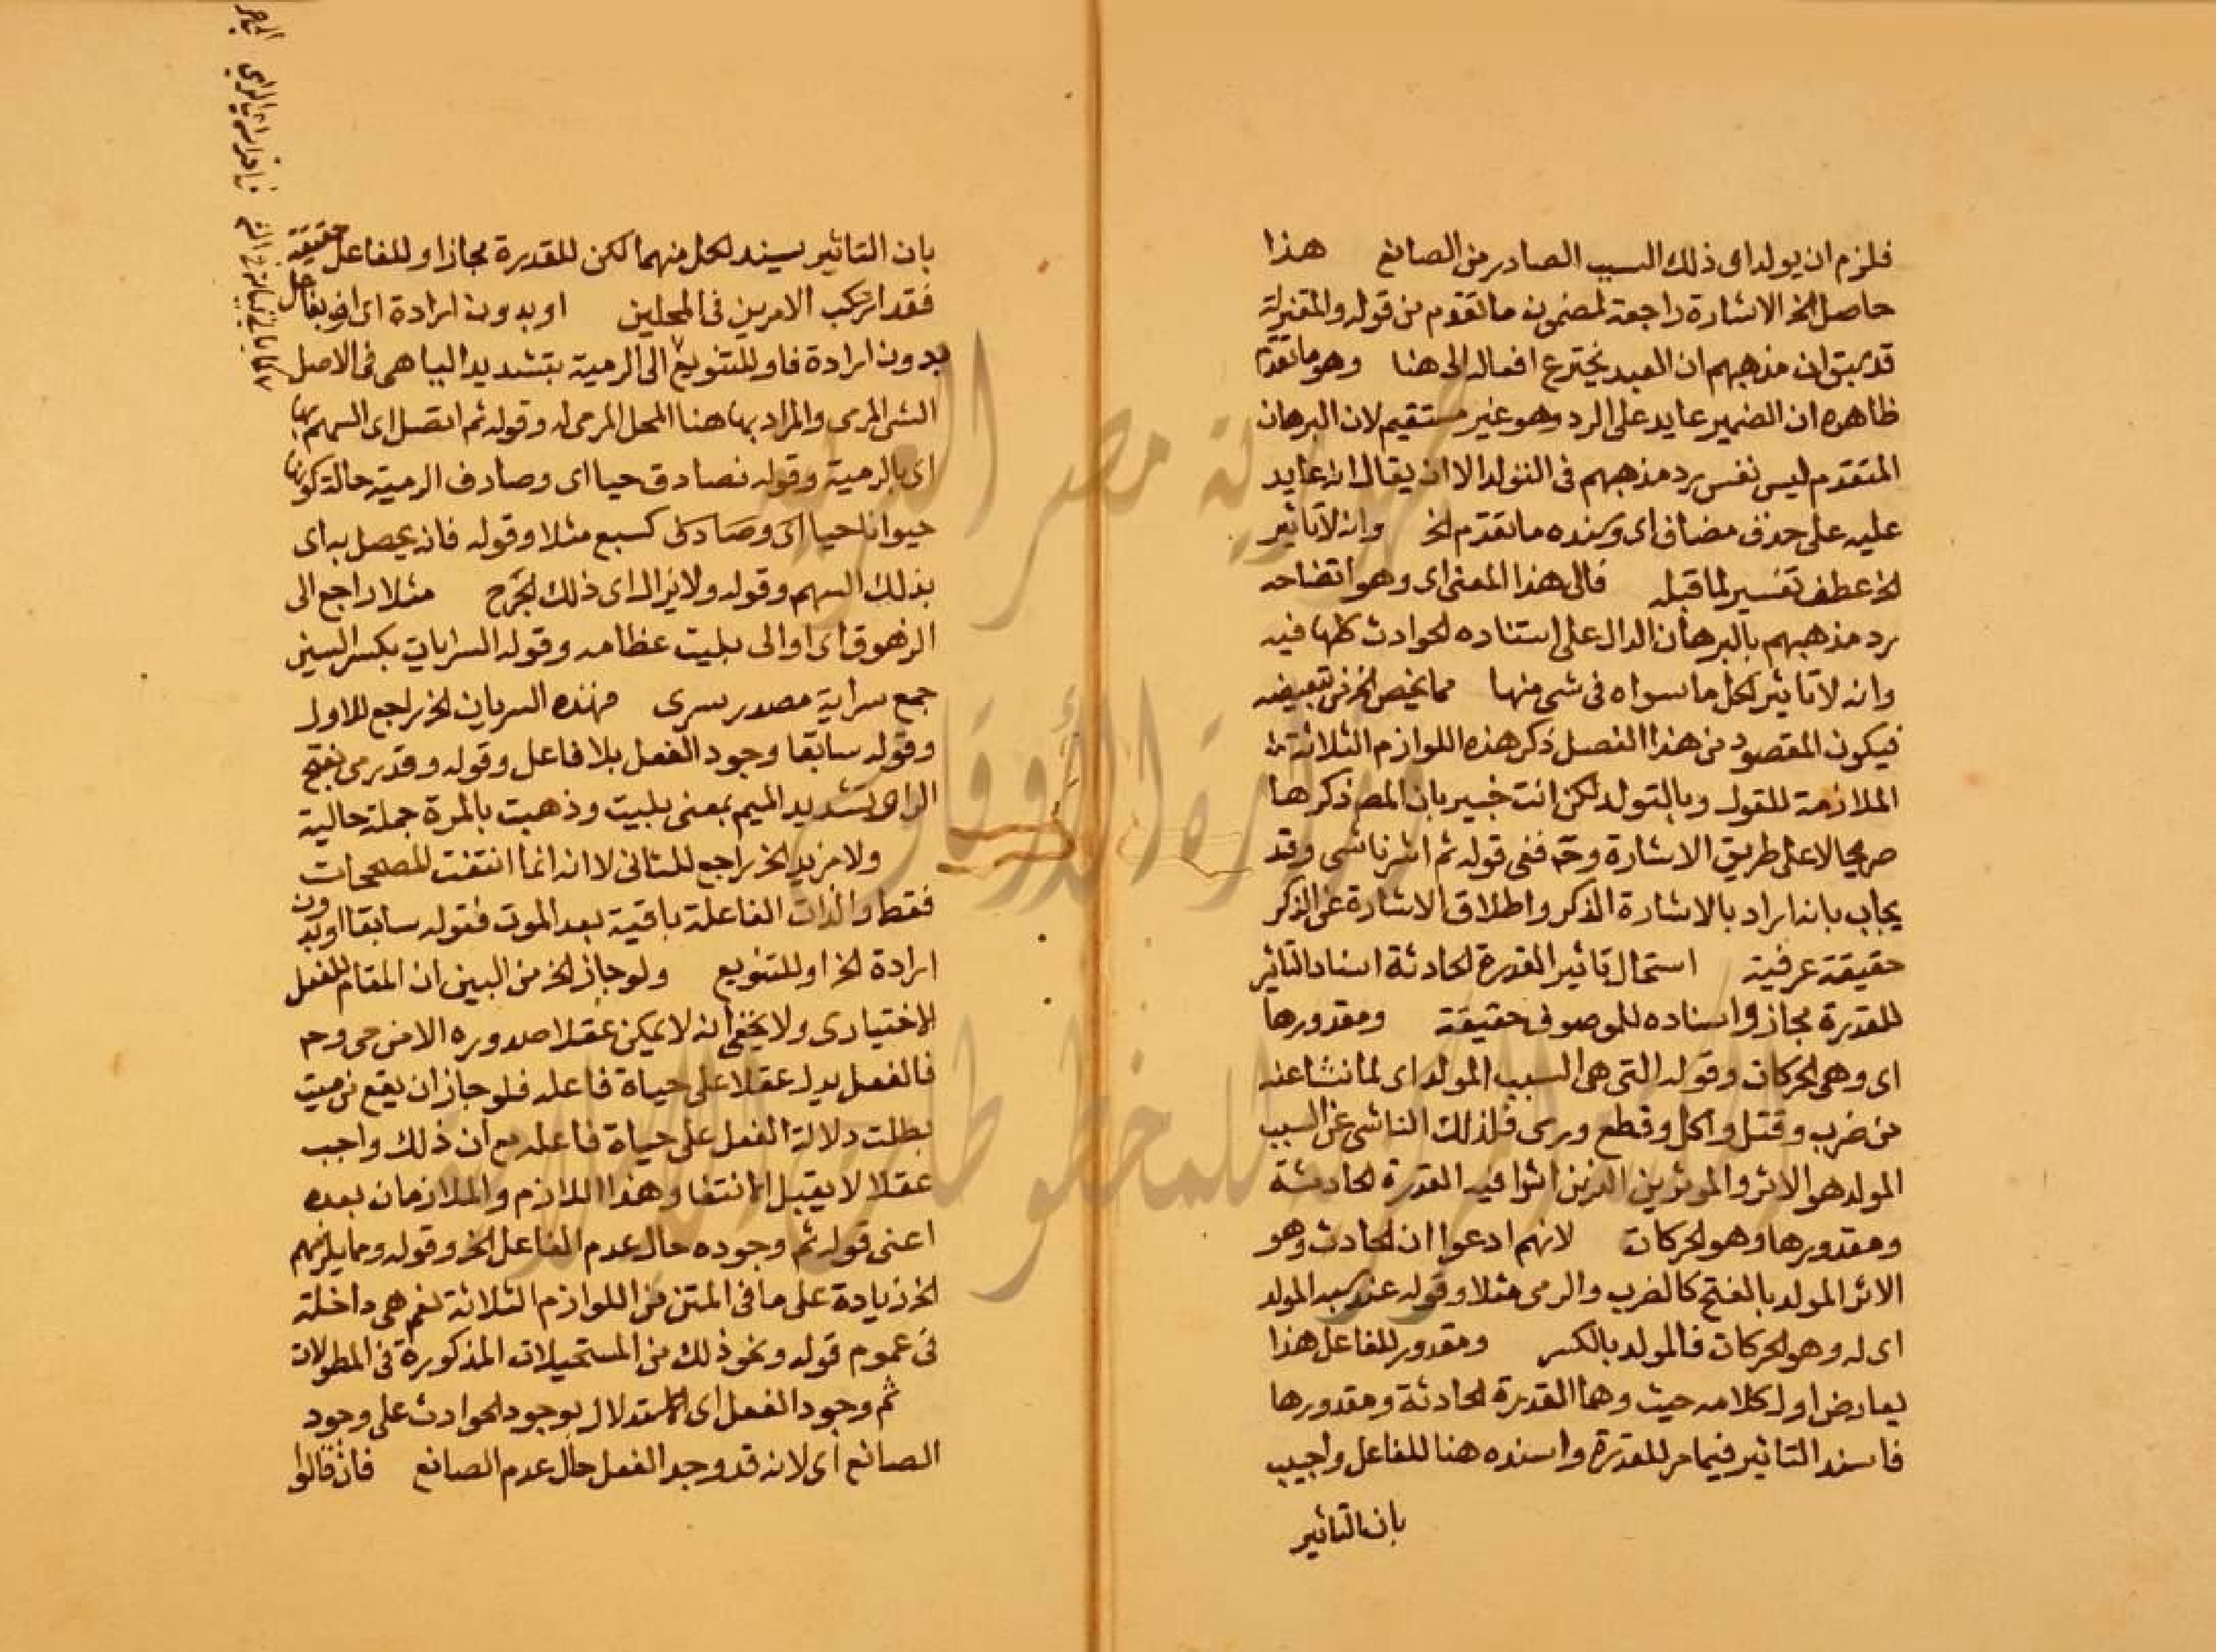 فلزم ان يولد اى ذلك السبب الصادر من الصانع هذا
حاصل الخ الاشارة راجعة لمضمون ما تقدم من قوله والمعتزلة
قد سبق ان مذهبهم ان العبد يخترع افعاله الى هنا وهو ما تقدم
ظاهره ان الضمير عايد على الرد وهو غير مستقيم لان البرهان
المتقدم ليس نفس رد مذهبهم فى التولد الا ان يقال انه عايد
عليه على حذف مضاف اى وسنده ما تقدم الخ وانه لا تاثير
الخ عطف تفسير لما قبله فالى هذا المعنى اى وهو اتضاحه
رد مذهبهم بالبرهان الدال على استناده الحوادث كلها فيه
وانه لا تاثير لكل ما سواه فى شى منها مما يخص الخ من تبعيضه
فيكون المقصود من هذا الفصل ذكر هذه اللوازم الثلاثة
الملازمة للقول وبالتولد لكن انت خبير بان المص ذكرها
صريحا لا على طريق الاشارة وح ففى قوله ثم اشرنا شى وقد
يجاب بانه اراد بالاشارة الذكر واطلاق الاشارة عن الذكر
حقيقة عرفية استحال تاثير القدرة الحادثة اسناد التاثير
للقدرة مجاز واسناده للموصوف حقيقة ومقدورها
اى وهى الحركات وقوله التى هى السبب المولد اى لما نشا عنه
من ضرب وقتل واكل وقطع ورمى فلذلك الناشى عن السبب
المولد هو الاثر والموثرين الذين اثرا فيه القدرة الحادثة
ومقدورها وهو الحركات لانهم ادعوا ان الحادث وهو
الاثر المولد بالفتح كالضرب والرمى مثلا وقوله عند سببه المولد
اى له وهو الحركات فالمولد بالكسر ومقدور للفاعل هذا
يعارض اول كلامه حيث وهما القدرة الحادثة ومقدورها
فاسند التاثير فيما مر للقدرة واسنده هنا للفاعل واجيب
بان التاثير
بان التاثير يسند لكل منهما لكن للقدرة مجازا وللفاعل حقيقة
فقد ارتكب الامرين فى المحلين او بدون ارادة اى او بفاعل
بدون ارادة فاو للتنويع الى الرمية بتشديد اليا هى فى الاصل
الشى المرمى والمراد بها هنا المحل المرمى له وقوله ثم اتصل اى السهم بها
اى بالرمية وقوله فصادف حيا اى وصادف الرمية حالة كونها
حيوانا حيا اى وصادف كسبع مثلا وقوله فانه يحصل به اى
بذلك السهم وقوله ولا يزال اى ذلك الجرح مثلا راجع الى
الزهوق اى او الى بليت عظامه وقوله السرايات بكسر السين
جمع سراية مصدر سرى فهذه السريان الخ راجع للاول
وقوله سابقا وجود الفعل بلا فاعل وقوله وقد رمى بفتح
الرا وتشديد الميم بمعنى بليت وذهبت بالمرة جملة حالية
ولا مزيد الخ راجع للثانى لا انه انما انتفت المصححات
فقط والذات الفاعلة باقية بعد الموت فقوله سابقا او بدون
ارادة الخ او للتنويع ولو جاز الخ من البين ان المقام للفعل
الاختيارى ولا يخفى انه لا يمكن عقلا صدوره الا من حى وح
فالفعل يدل عقلا على حياة فاعله فلو جاز ان يقع من ميت
بطلت دلالة الفعل على حياة فاعله مع ان ذلك واجب
عقلا لا يقبل الانتفا وهذا اللازم والملازمان بعده
اعنى قوله ثم وجوده حال عدم الفاعل الخ وقوله وما يلزمهم
الخ زيادة على ما فى المتن من اللوازم الثلاثة نعم هى داخلة
فى عموم قوله ونحو ذلك من المستحيلات المذكورة فى المطولات
ثم وجود الفعل اى الاستدلال بوجود الحوادث على وجود
الصانع اى لانه قد وجد الفعل حال عدم الصانع فان قالوا
جمهورية مصر العربية
وزارة الأوقاف
المكتبة المركزية للمخطوطات الإسلامية